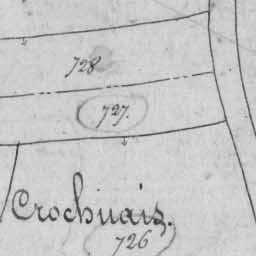 728
727.
Crochuais.
726